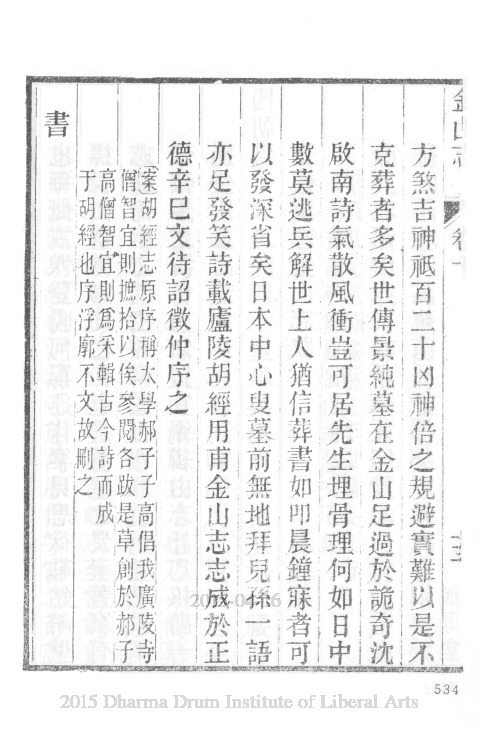 金山志 卷十
方煞吉神祗百二十凶神倍之規避實難以是不
克葬者多矣世傳景純墓在金山足過於詭奇沈
啟南詩氣散風衝豈可居先生埋骨理何如日中
數莫逃兵解世上人猶信葬書如叩晨鐘寐者可
以發深省矣日本中心叟墓前無地拜兒孫一語
亦足發笑詩載廬陵胡經用甫金山志志成於正
德辛巳文待詔徵仲序之
案胡經志原序稱太學郝子子高倡我廣陵寺
僧智宜則摭拾以俟參閱各跋是草創於郝子
高僧智宜則為采輯古今詩而成
于胡經也序浮廓不文故刪之
書
534
2015 Dharma Drum Institute of Liberal Arts